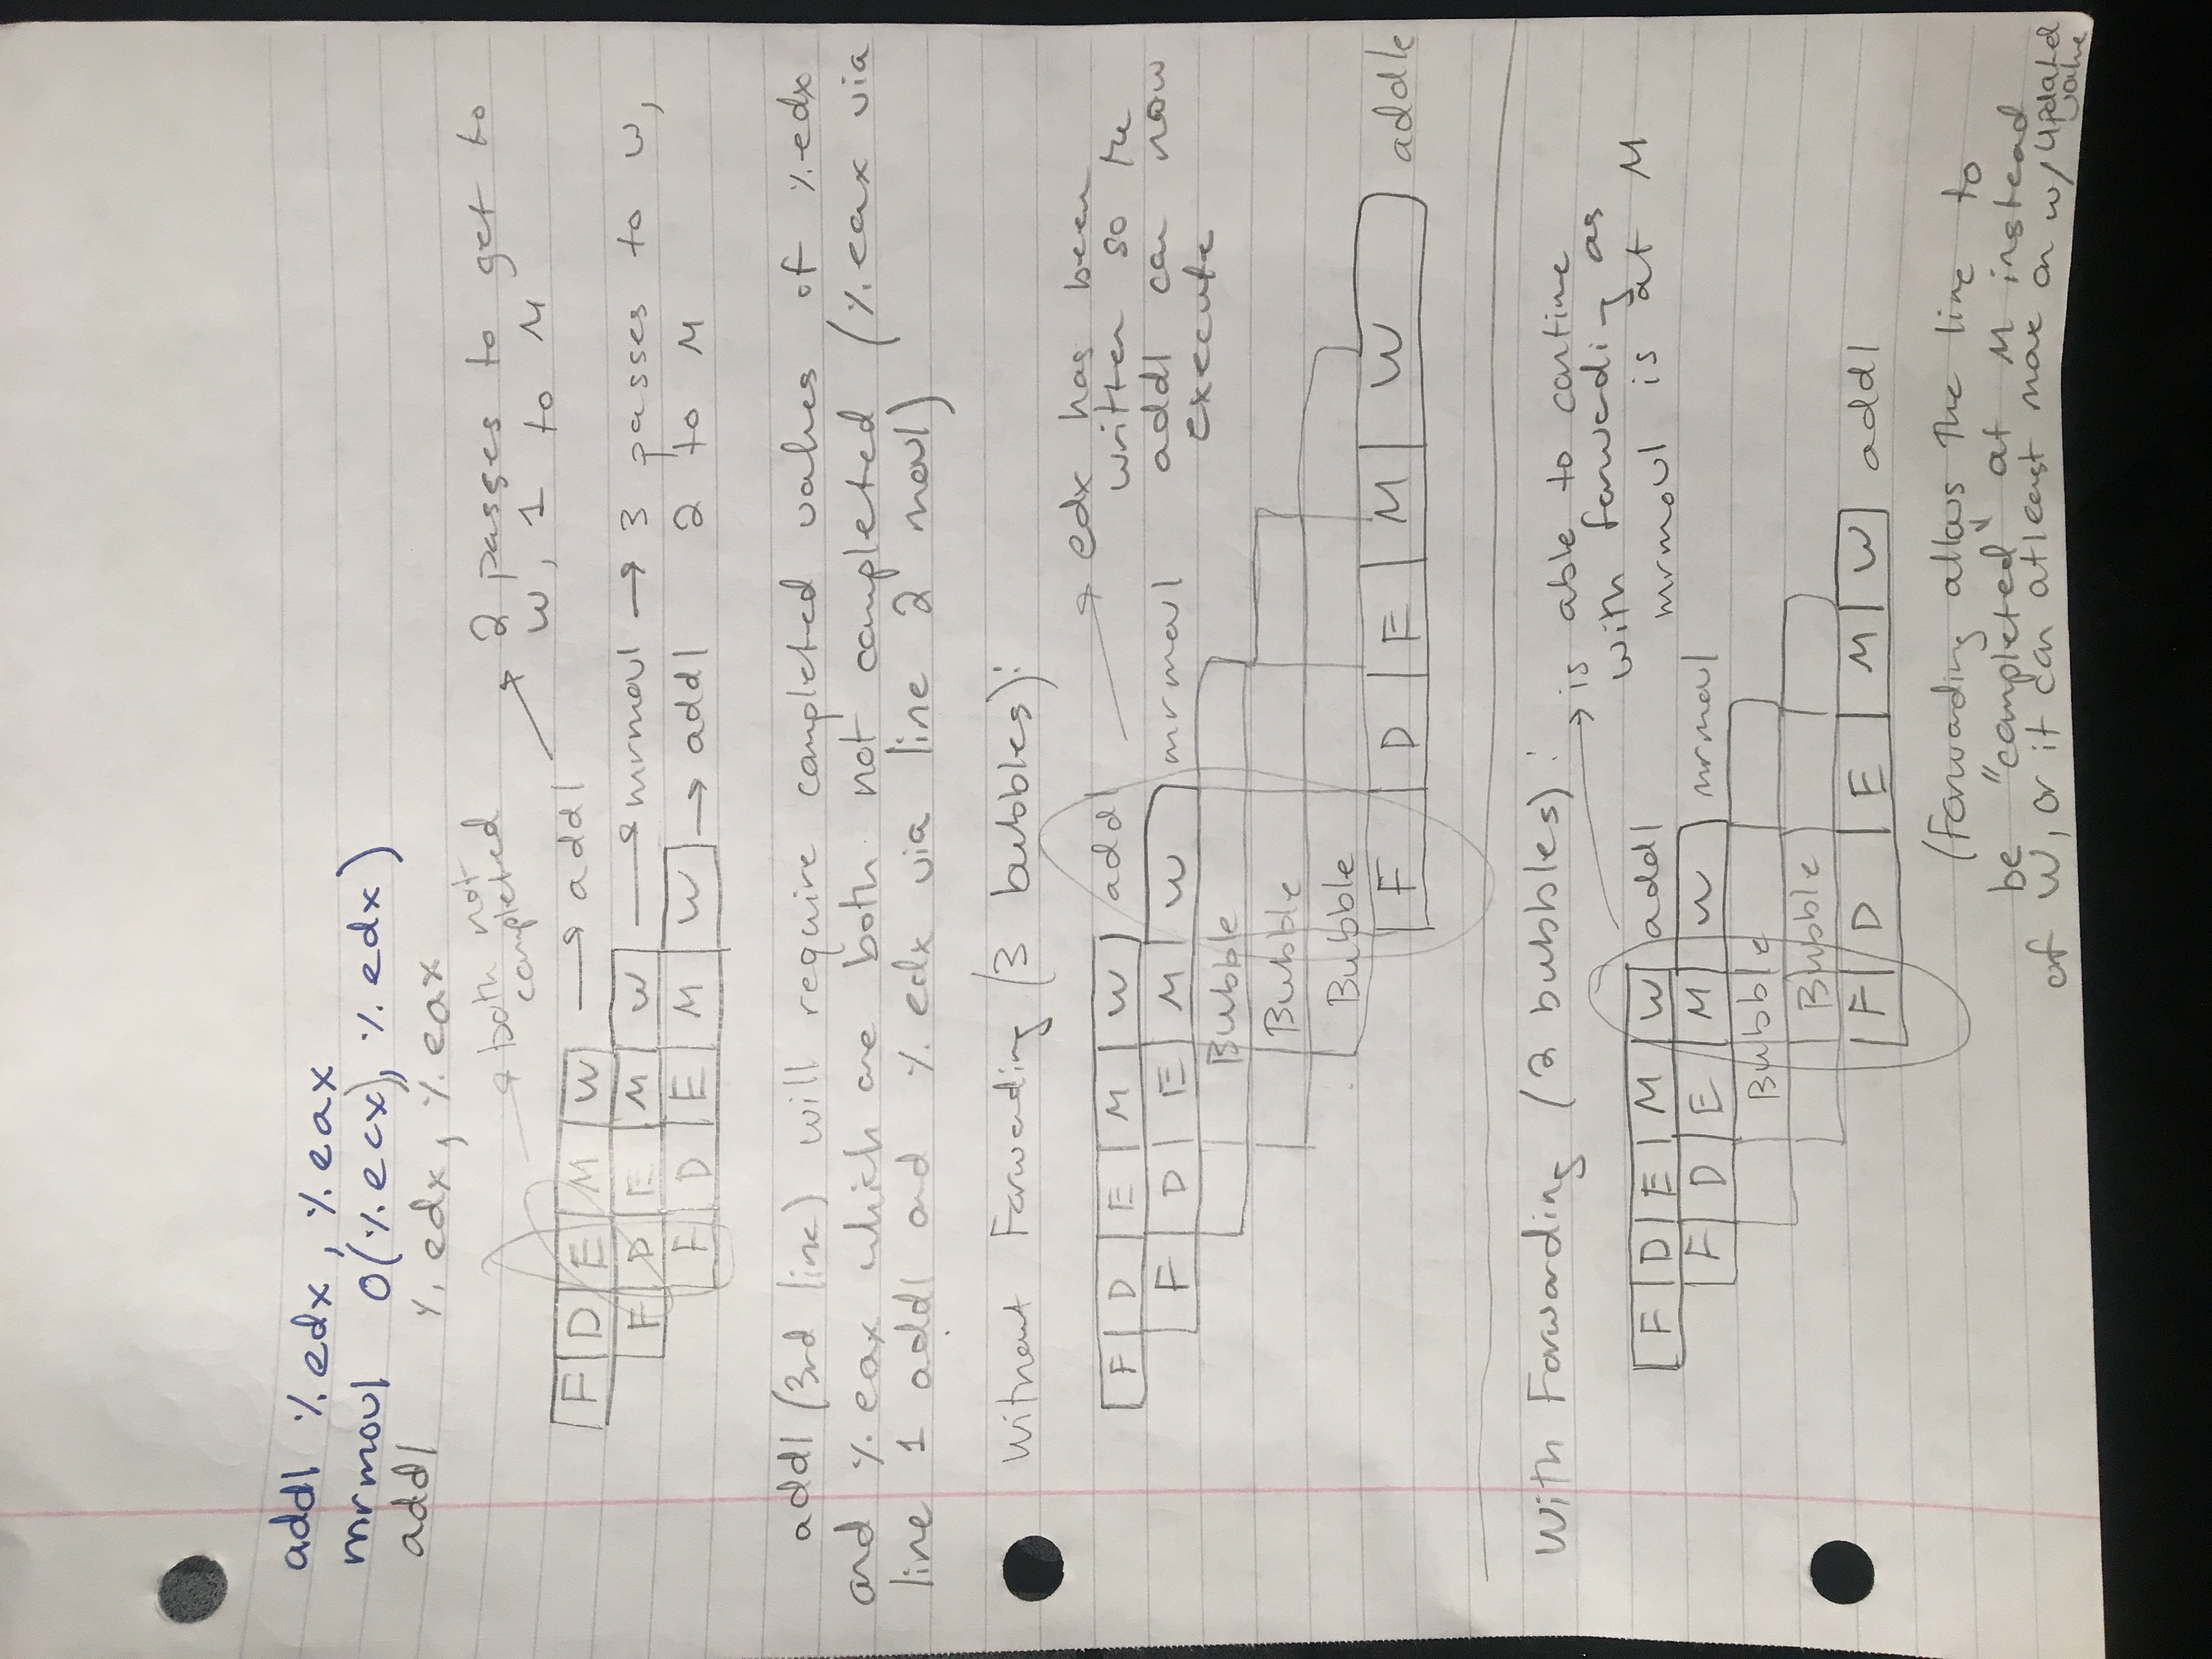 addl %edx, %eax
mrmovl 0(%ecx), %edx)
addl %edx, %eax
both not
completed
2 passes to get to
W, 1 to M
F D E M W → addl
F D E M W → mrmovl → 3 passes to W,
F D E M W → addl 2 to M
addl (3rd line) will require completed values of %edx
and %eax which are both not completed (%eax via
line 1 addl and %edx via line 2 movl)
Without Forwarding (3 bubbles):
F D E M W addl
F D E M W mrmovl
Bubble
Bubble
Bubble
F D E M W addl
edx has been
written so the
addl can now
execute
With Forwarding (2 bubbles):
is able to contine
with forwading as
mrmovl is at M
F D E M W addl
F D E M W mrmovl
Bubble
Bubble
F D E M W addl
(Forwarding allows the line to
be "completed" at M instead
of W, or it can atleast move on w/ updated
value